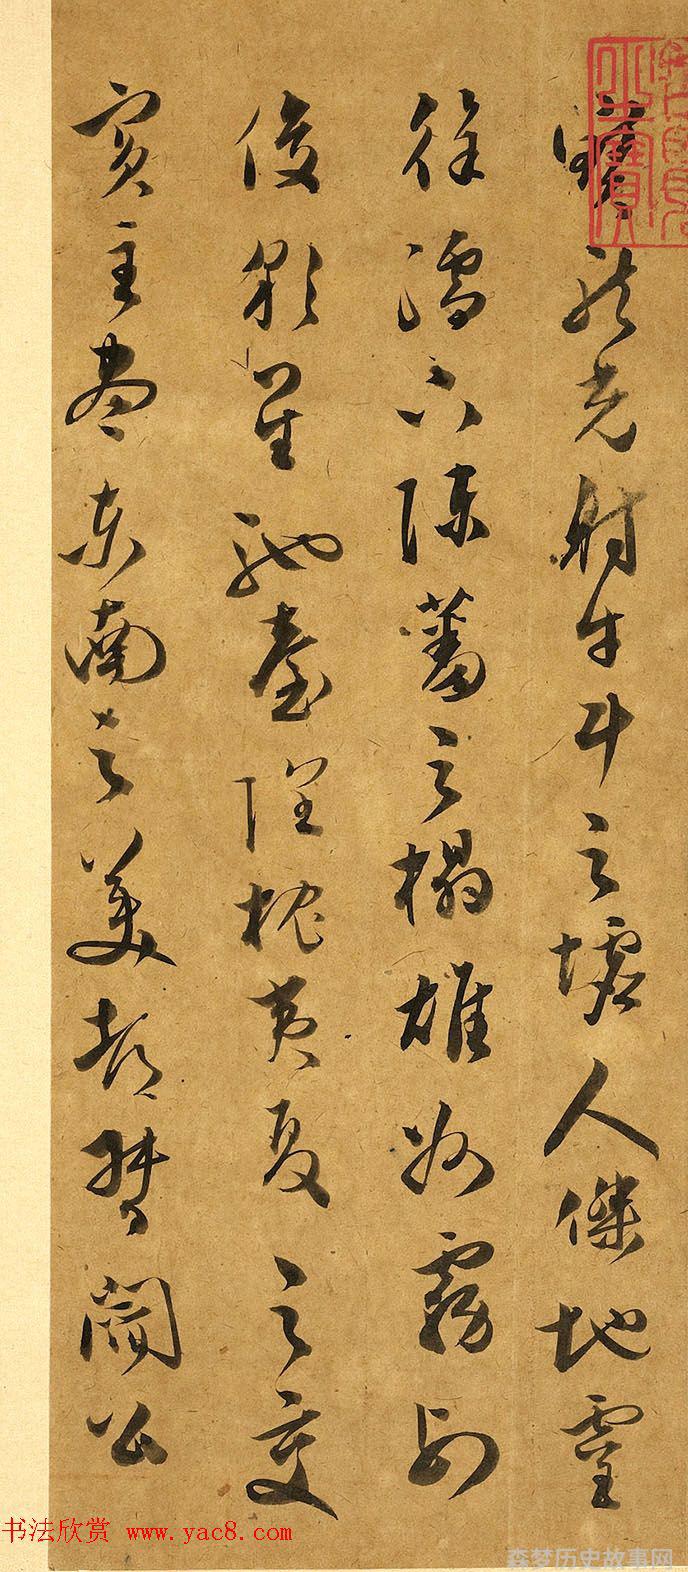 寶龍光射牛斗之墟人傑地靈
徐孺下陳蕃之榻雄州霧列
俊彩星馳臺隍枕夷夏之交
賓主盡東南之美都督閻公
书法欣赏 www.yac8.com
森梦历史故事网